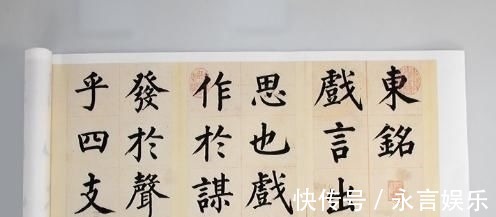 東銘
戲言出
思也戲
作於謀
發於聲
乎四支
快传号 / 永言娱乐